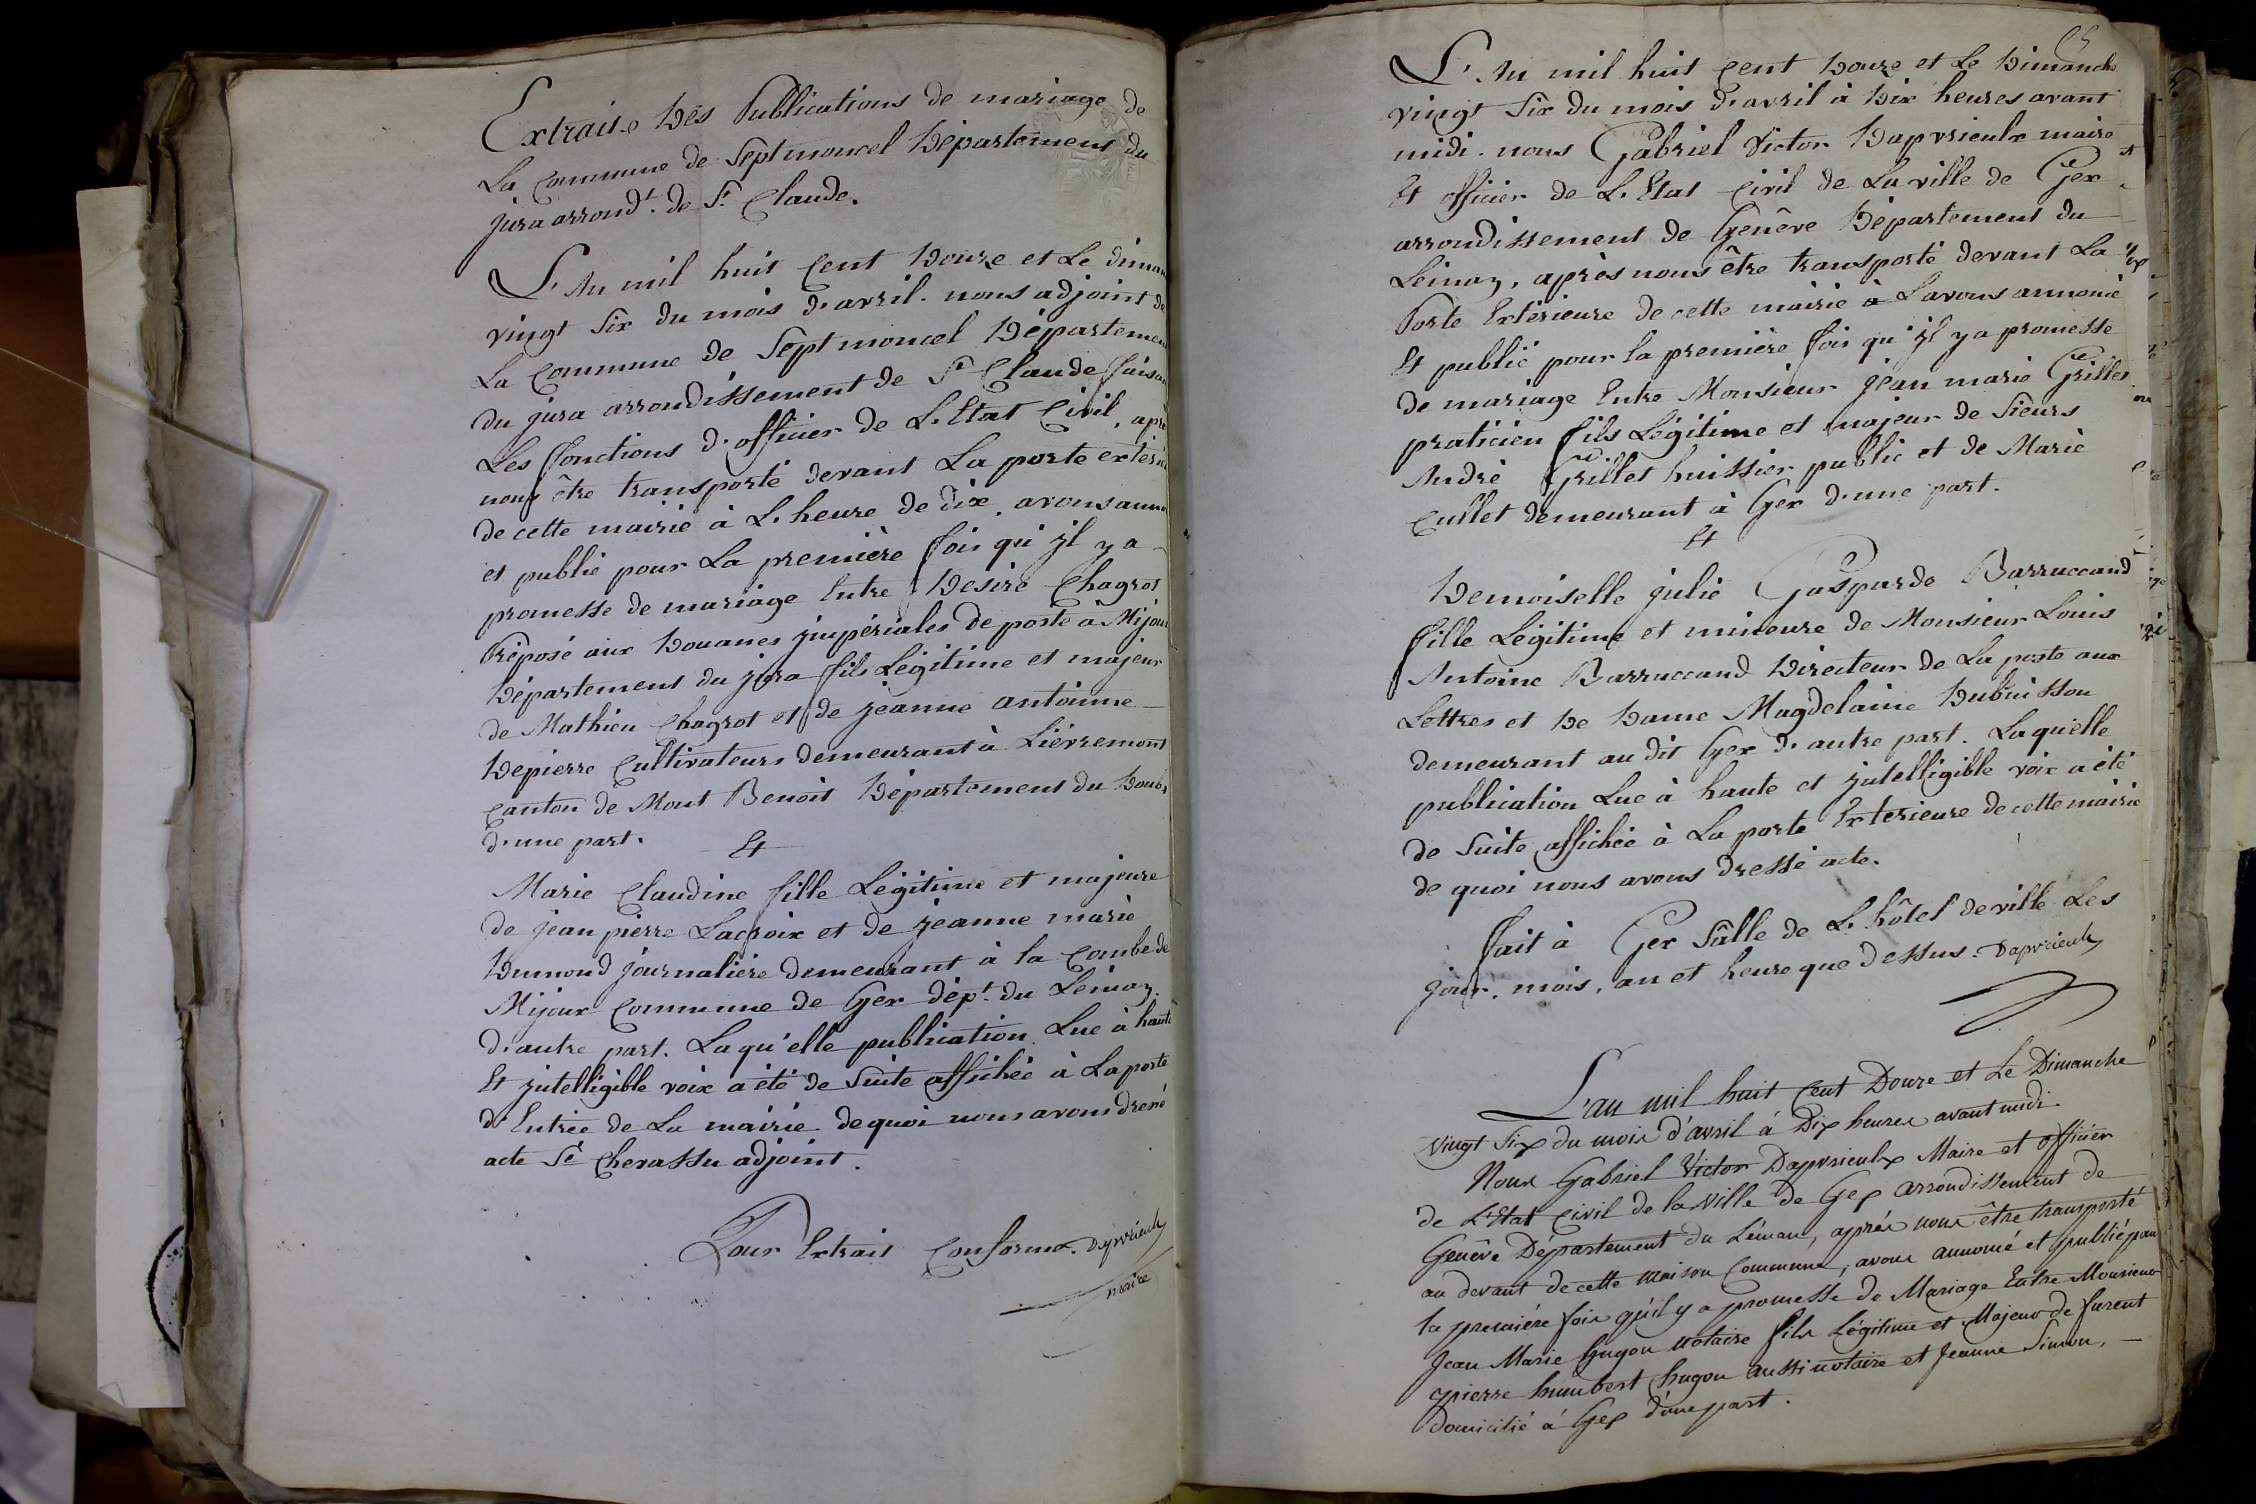 Extrait Des Publications de mariage de
La Commune de Septmoncel Département du
jura arrondt. de St. Claude.
L'An mil huit Cent Douze et Le diman
vingt Six du mois d'avril. nous adjoint de
La Commune de Septmoncel Départemen
du jura arrondissement de St Claude faisan
Les fonctions d'officier de L'Etat Civil, apr
nous être transporté devant La porte extéri
de cette mairie à L'heure de dix, avons ann
et publié pour La première fois qu'jl y a
promesse de mariage Entre Desiré Chagrot
Préposé aux Douanes jmpériales de poste à Mijou
Département du jura fils Légitime et majeur
de Mathieu Chagrot et de jeanne antoinne
Depierre Cultivateurs demeurant à Lievremont
canton de Mont Benoit Département du Doubs
d'une part.
Et
Marie Claudine fille Légitime et majeure
de jean pierre Lacroix et de jeanne marie
Dumond journalière demeurant à la Combe de
Mijoux Commune de Gex dépt. du Leman.
d'autre part. Laqu'elle publication Lue à haute
Et jntelligible voix a été de Suite affichée à La porte
d'Entrée de La mairie de quoi nous avons dressé
acte Sé Chevassu adjoint.
Pour Extrait Conforme. Dapvrieulx
maire
L'An mil huit Cent Douze et Le Dimanche
vingt Six du mois d'avril à Dix heures avant
midi. nous Gabriel Victor Dapvrieulx maire
Et officier de L'Etat Civil de La ville de Gex
arrondissement de Genêve Département du
Leman, après nous être transporté devant La
Porte Extérieure de cette mairie à Lavons annoncé
Et publié pour la première fois qu'jl y a promesse
de mariage Entre Monsieur jean marie Grillet
praticien fils Légitime et majeur de Sieurs
André Grillet huissier public et de Marie
Cullet demeurant à Gex d'une part.
Et
Demoiselle julie Gasparde Barruccand
fille Légitime et mineure de Monsieur Louis
Antoine Barruccand Directeur de La poste aux
Lettres et De Dame Magdelaine Dubuisson
demeurant au dit Gex d'autre part. Laquelle
publication Lue à haute et jntelligible voix a été
de Suite affichée à La porte Exterieure de cette mairie
de quoi nous avons dressé acte.
fait à Gex Sâlle de L'hôtel de ville Les
jour, mois, an et heure que dessus. Dapvrieulx
L'an mil huit Cent Douze et Le Dimanche
vingt Six du mois d'avril à Dix heures avant midi.
Nous Gabriel Victor Dapvrieulx Maire et officier
de L'Etat Civil de la Ville de Gex arrondissement de
Genêve Département du Léman, après nous être transporté
au devant de cette maison Commune, avons annoncé et publié pour
la première fois qu'il y a promesse de Mariage Entre Monsieur
Jean Marie hugon notaire fils Légitime et Majeur de furent
pierre humbert hugon aussi notaire et Jeanne Simon,
Domicilié à Gex d'une part.